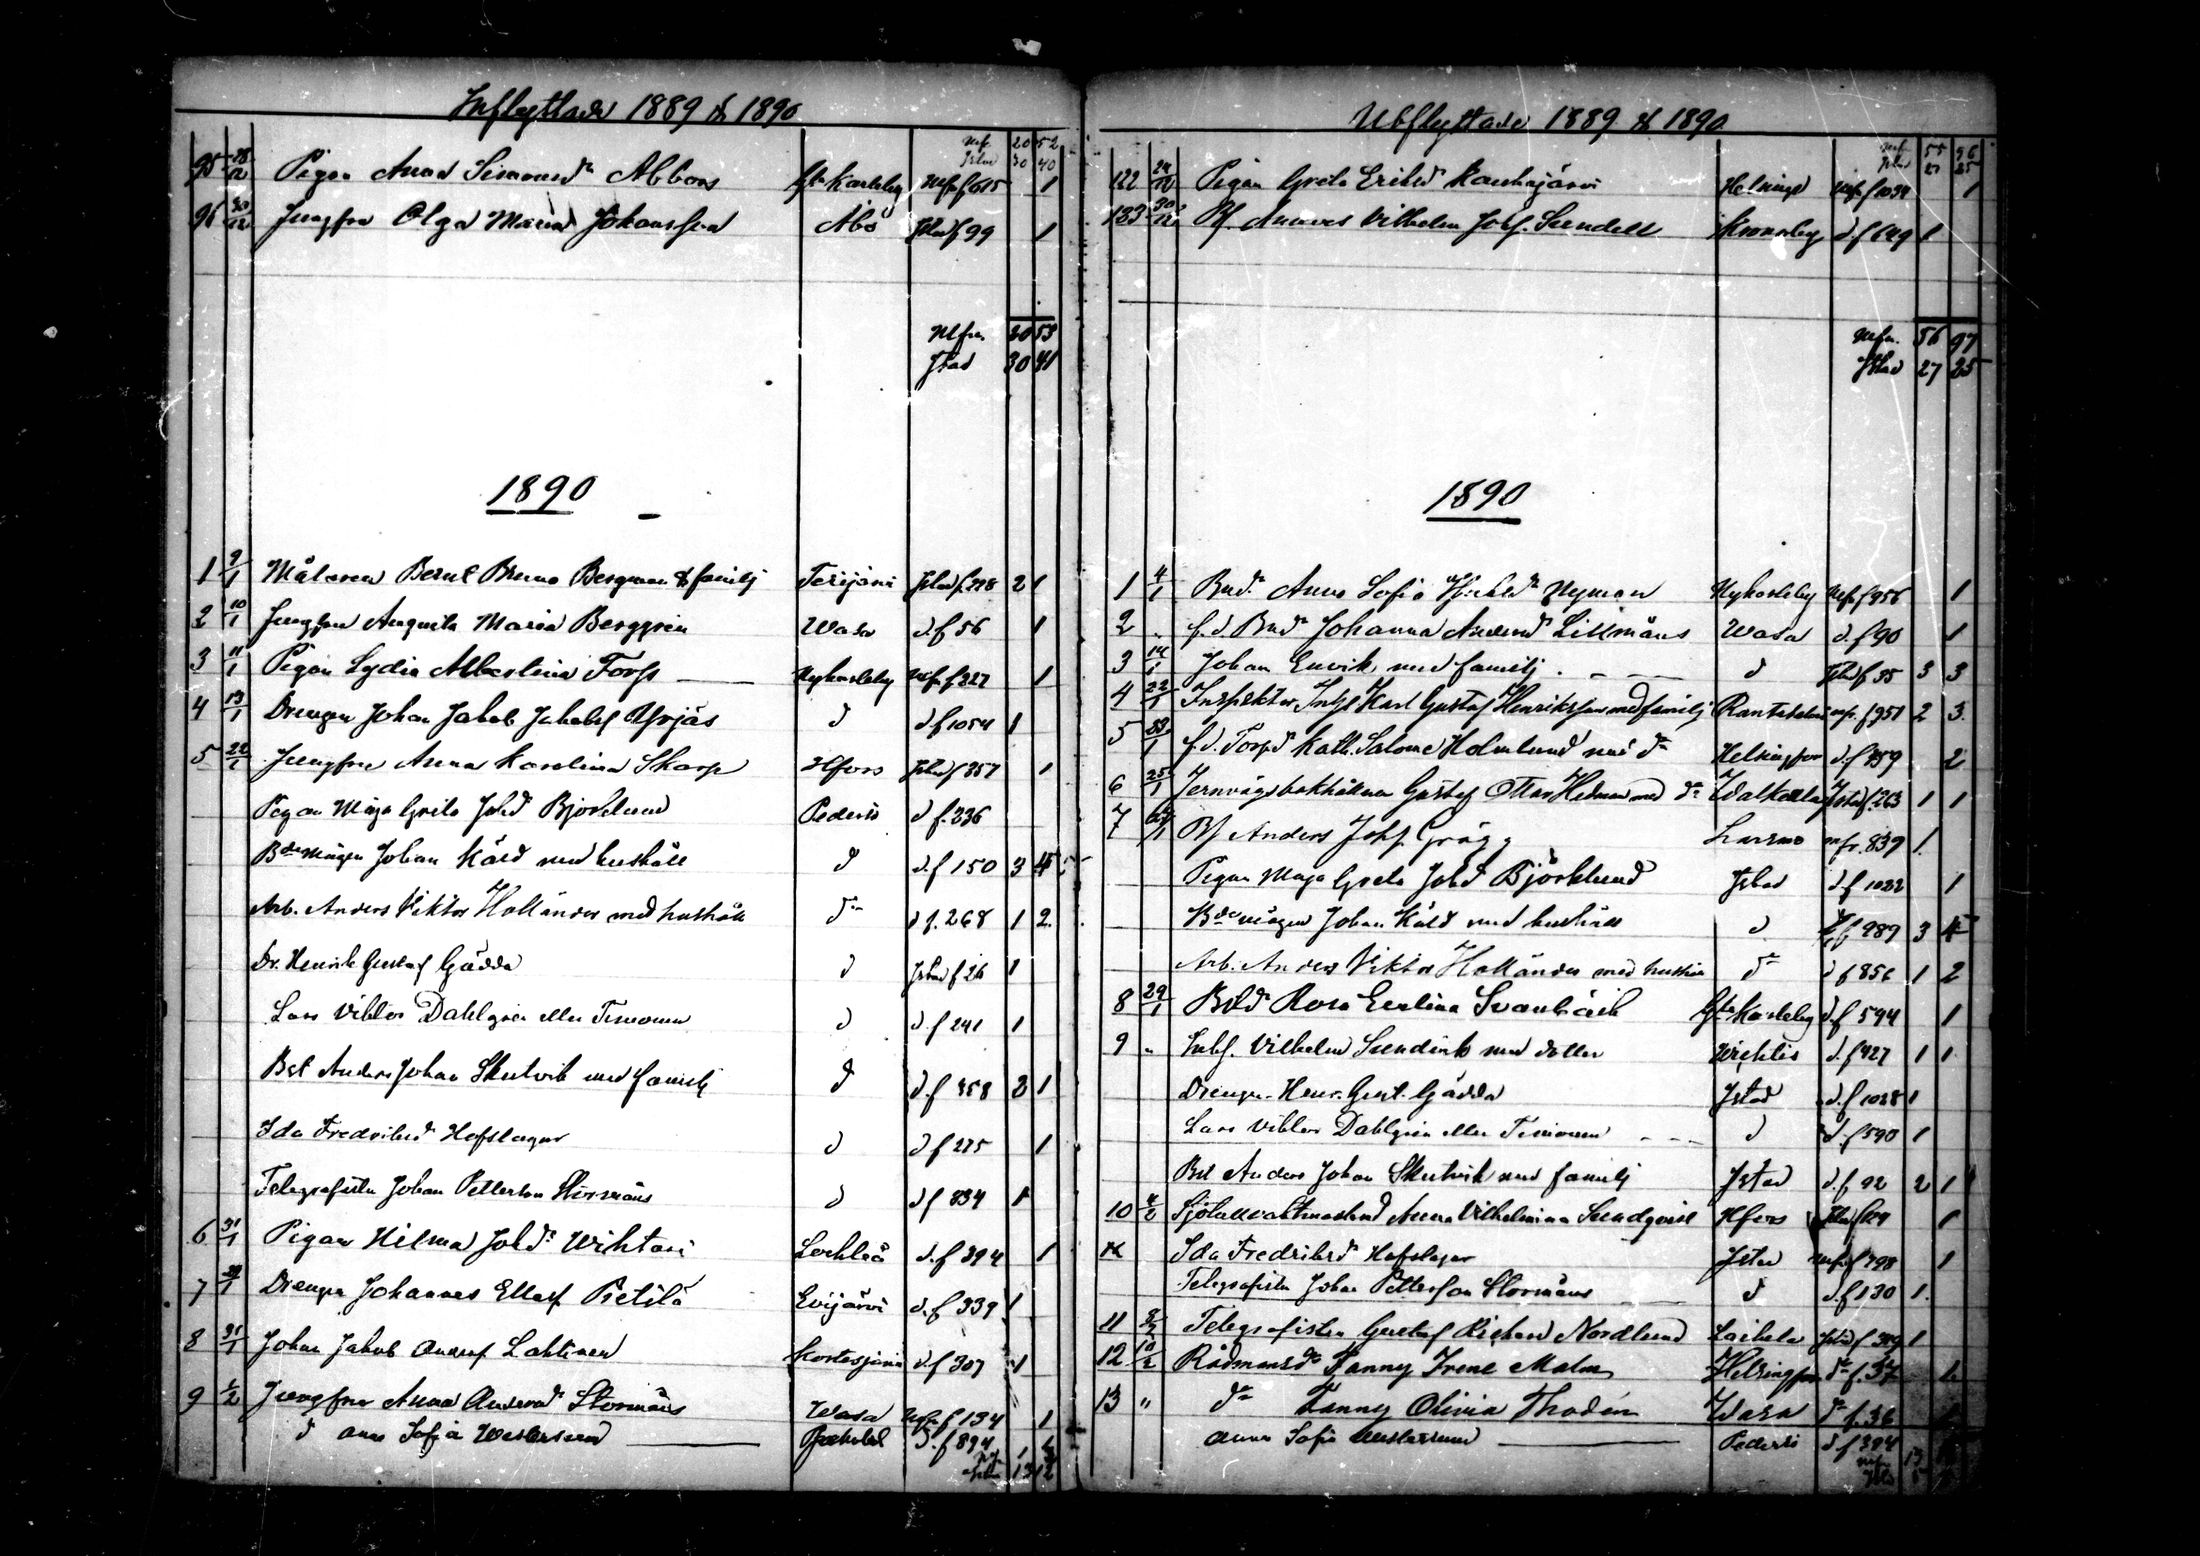 Inflyttade 1889 & 1890
Mfr. 20 52
Jstad 30 40
95 28/12 Pigan Anna Simonsd:r Abbors Gla Karleby Mfr f 615 1
96 30/12 Jungfru Olga Maria Johansson Åbo Jstad f 99 1
Mfr 20 53
Jstad 30 41
1890
1 9/1 Målaren Bernt Bruno Bergman & familj Terijärvi Jstad f. 278 2 1
2 10/1 Jungfru Augusta Maria Berggren Wasa d. f 56 1
3 11/1 Pigan Lydia Albertina Forss Nykarleby Mfr f 227 1
4 13/1 Drengen Johan Jakob Jakobsf Yrjäs d d f 1054 1
5 22/1 Jungfru Anna Karolina Skarp Hfors Jstad f 357 1
Pigan Maja Greta Johd Björklund Pedersö d f. 236
Bdemågen Johan Kåld med hushåll d d. f 150 3 4
Arb. Anders Viktor Holländer med hushåll d:o d f. 268 1 2
Dr. Henrik Gustaf Gädda d Jstad f 26 1
Lars Viktor Dahlgren eller Timonen d d. f 241 1
Bst Anders Johan Skutvik med familj d d. f 358 2 1
Ida Fredriksd Hofslagar d d f 275 1
Telegrafisten Johan Petterson Stormåns d d f 334 1
6 31/1 Pigan Hilma Johd:r Wihtari Lochteå d. f 394 1
7 Drengen Johannes Eliasf Pietilä Evijärvi d. f 339 1
8 31/1 Johan Jakob Andersf Lahtinen Kortesjärvi d. f 307 1
9 1/2 Jungfru Anna Andersd:r Stormåns Wasa Mfr f 134 1
d Anna Sofia Westersund d. f 894 1
Utflyttade 1889 & 1890
Mfr 55 96
Jstad 27 25
122 24/12 Pigan Greta Eriksd Kauhajärvi Helsinge Mfr f 1034 1
123 30/12 Bf. Anders Vilhelm Johf. Sundell Kronoby d. f 649 1
Mfr. 56 97
Jstad 27 25
1890
1 4/1 Bnd:r Anna Sofia Nyman Nykarleby Mfr f 956 1
2 „ f. d. Bnd:r Johanna Andersd Lillmåns Wasa d. f 90 1
3 14/1 Johan Envik med familj d Jstad f 35 3 3
4 22/1 Inspektor Karl Gustaf Henriksson med familj Rantasalmi mfr. f 951 2 3
5 23/1 f. d. Torpd Kath. Salome Holmlund med d:r Helsingfors d. f 759 2
6 25/1 Jernvägsbokhållaren Gustaf Ottar Hedman med d:r Walkeala Jstad f. 263 1 1
7 Bf Anders Johf. Grågg Larsmo mfr. 839 1
Pigan Maja Greta Johd Björklund Jstad d. f 1022 1
Bdemågen Johan Kåld med hushåll d f 989 3 4
Arb. Anders Viktor Holländer med hushåll d:o d f 856 1 2
8 29/1 Bstd:r Rosa Evelina Svanbäck Gla Karleby d. f 594 1
9 „ Inhf. Vilhelm Sundvik med dotter Wichtis d. f 427 1 1
Drengen Henr. Gust. Gädda Jstad d. f 1028 1
Lars Viktor Dahlgren eller Timonen d d. f 590 1
Bst Anders Johan Skutvik med familj Jstad d. f. 92 2 1
10 4/2 Anna Vilhelmina Sundqvist Hfors Jstad f 129 1
Ida Fredriksd:r Hofslagar Jstad mfr f 798 1
Telegrafisten Johan Petterson Stormåns d d. f 130 1
11 8/2 Telegrafisten Gustaf Richard Nordlund Laihela Jstad f 389 1
12 10/2 Rådmansd:r Fanny Irene Malm Helsingfors d:o f. 37 1
13 „ d:o Fanny Olivia Thodén Wasa d:o f. 36 1
Anna Sofia Westersund Pedersö d. f 394